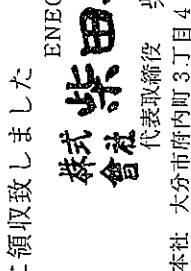 に領収致しました
ENEO
株式
會社
柴田
代表取締役 柴
本社 大分市府内町3丁目4